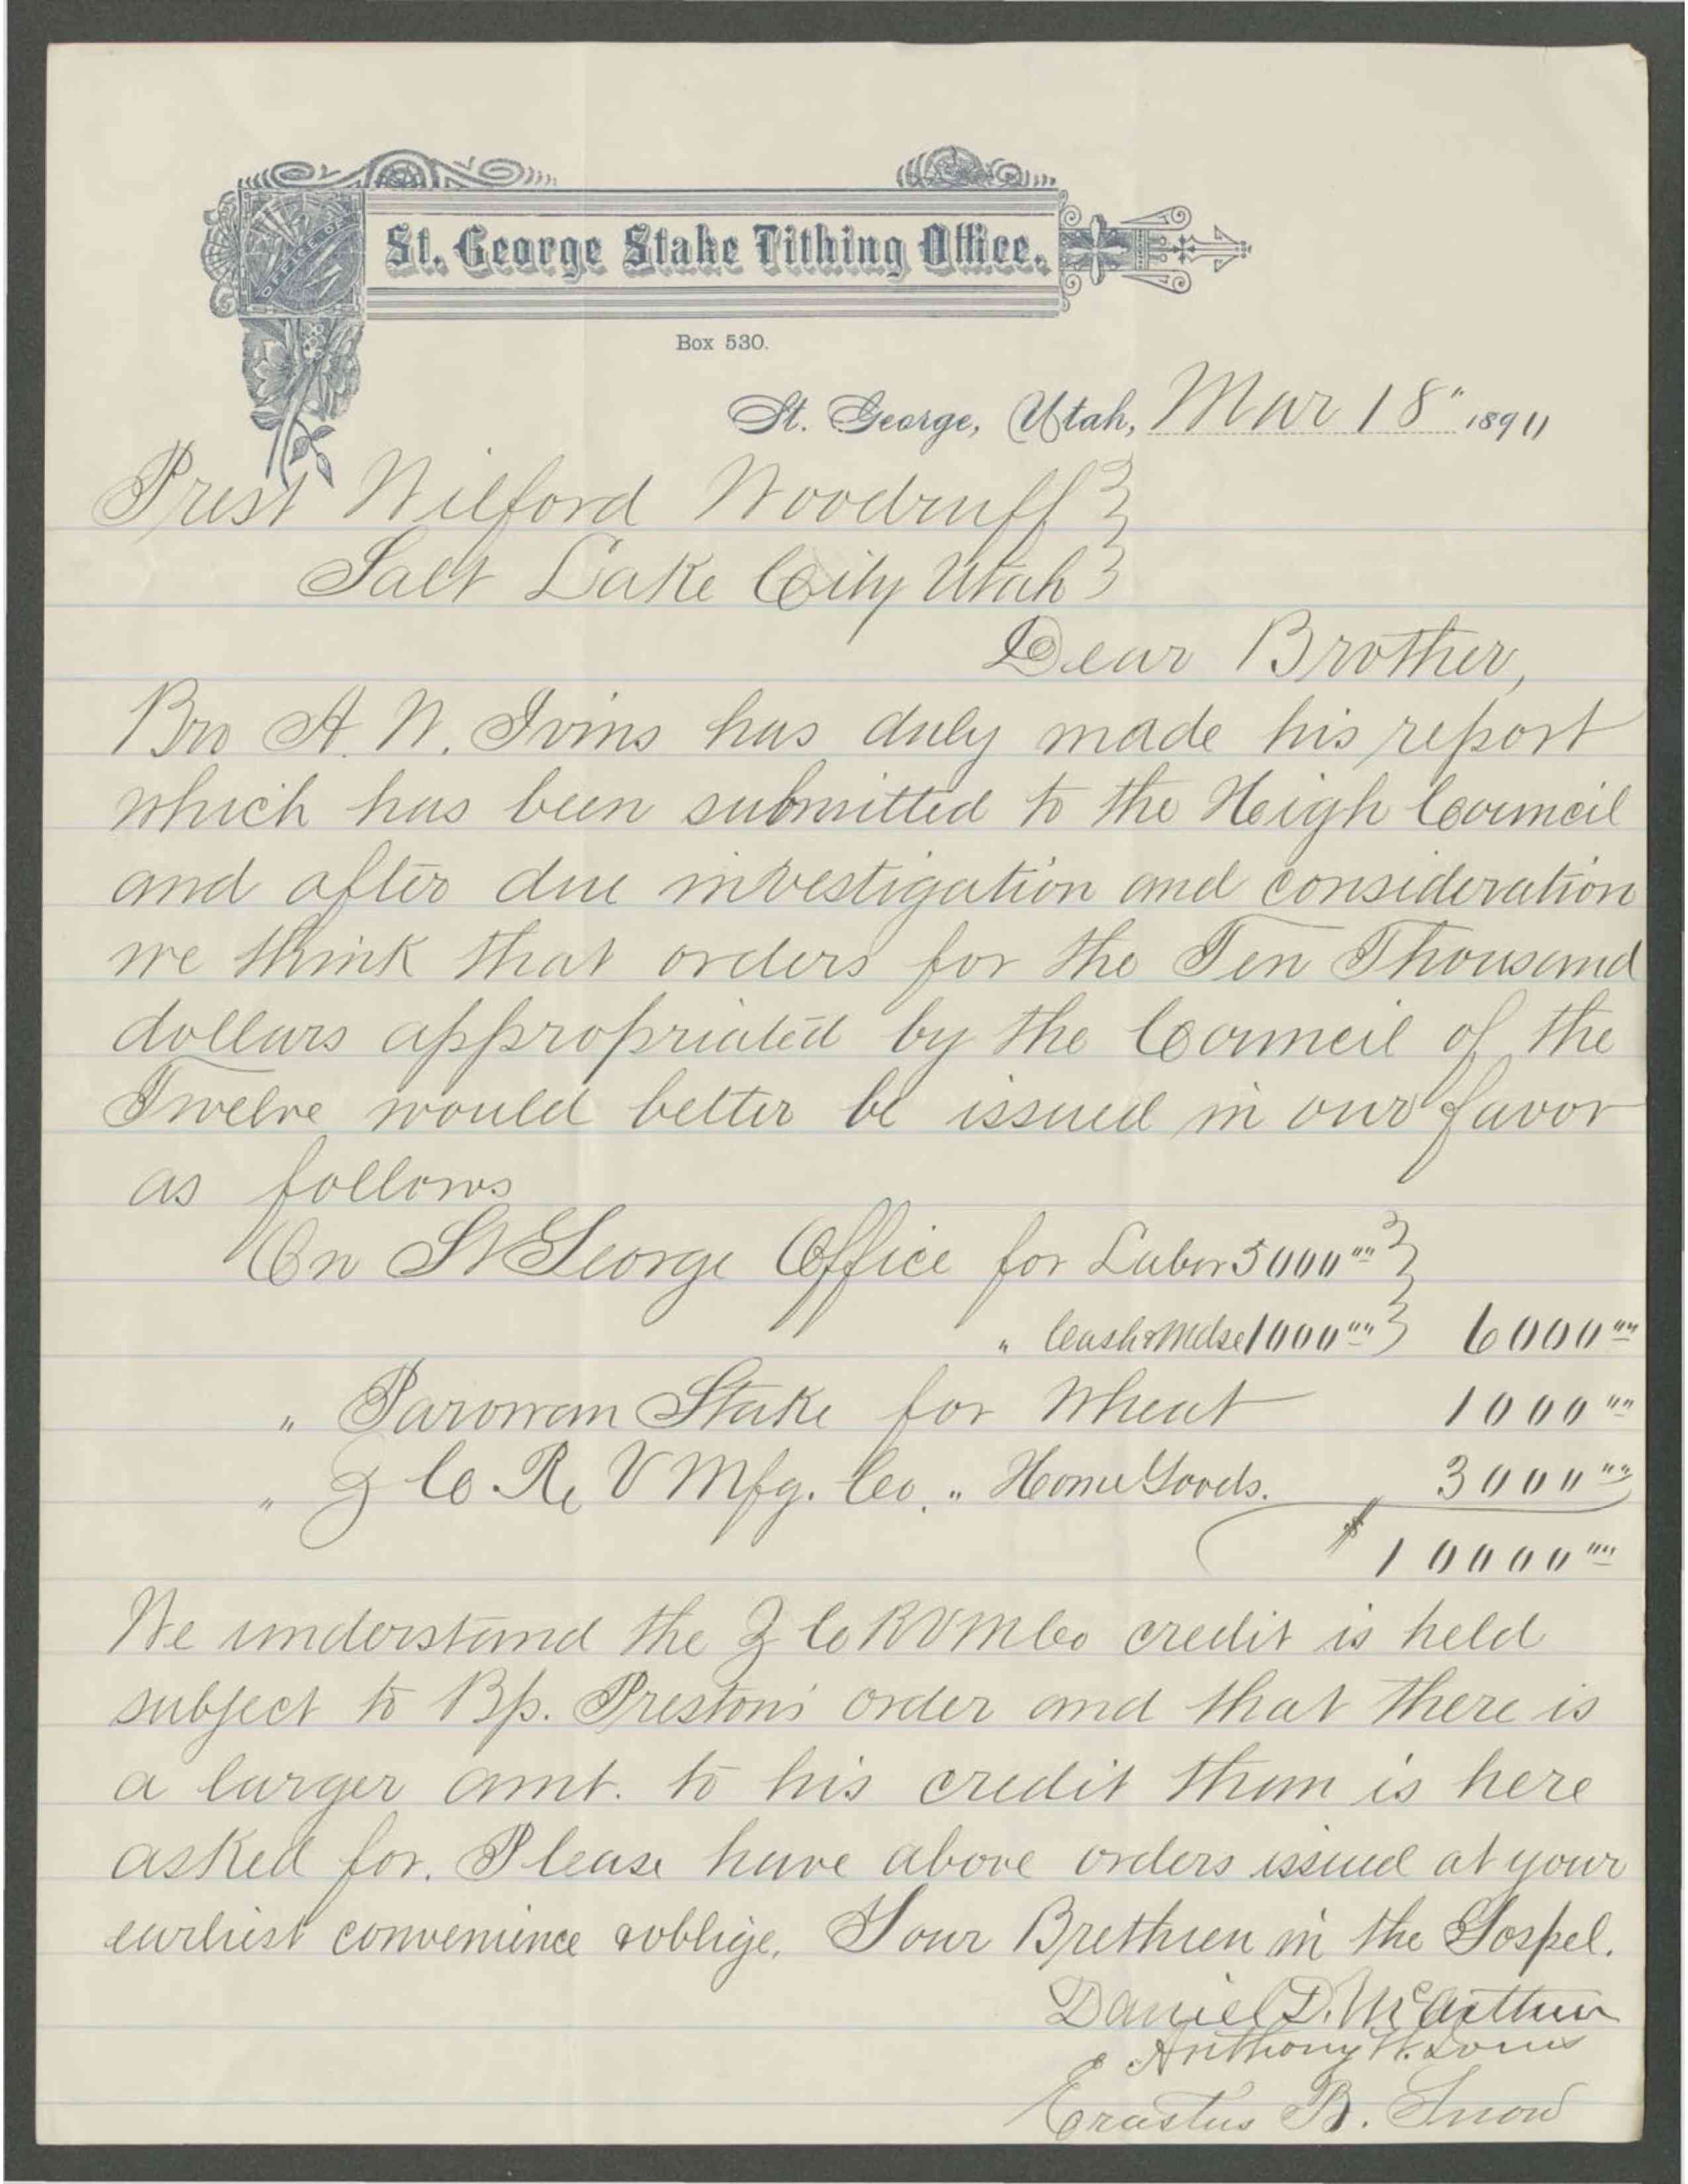 OFFICE OF
St. George Stake Tithing Office.
Box 530.
St. George, Utah, Mar 18" 1890
Prest Wilford Woodruff }
Salt Lake City Utah }
Dear Brother,
Bro A. W. Ivins has duly made his report
which has been submitted to the Heigh Council
and after due investigation and consideration
we think that orders for the Ten Thousand
dollars appropriated by the Council of the
Twelve would better be issued in our favor
as follows
On St George Office for Labor 5000 00 }
" Cash & Mdse 1000 00 } 6000 00
" Parowan Stake for Wheat 1000 00
" Z Co R. V Mfg. Co. " Home Goods. 3000 00
$ 10000 00
We understand the Z Co R V M Co credit is held
subject to Bp. Preston's order and that there is
a larger amt. to his credit than is here
asked for. Please have above orders issued at your
earliest convenience & oblige. Your Brethren in the Gospel.
Daniel D. McArthur
Anthony W. Ivins
Erastus B. Snow